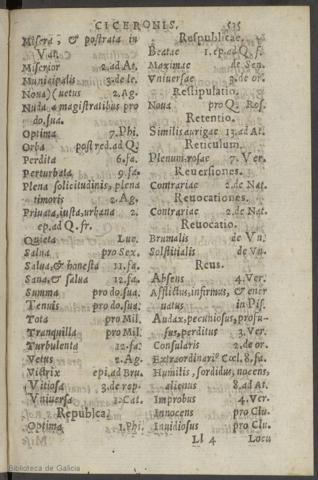 CICERONIS. 525
Misera, & postrata in
Vat.
Miserior 2.ad At.
Municipalis 3.de le.
Noua)(uetus 2.Ag.
Nuda a magistratibus pro
do.sua.
Optima 7.Phi.
Orba post red.ad Q.
Perdita 6.fa.
Perturbata 9.fa.
Plena solicitudinis, plena
timoris 2.Ag.
Priuata, iusta, urbana 2.
ep.ad Q.fr.
Quieta Luc.
Salua pro Sex.
Salua, & honesta 11.fa.
Sana, & salua 12.fa.
Summa pro do.sua.
Tenuis pro do.sua.
Tota pro Mil.
Tranquilla pro Mil.
Turbulenta 12.fa.
Vetus 2.Ag.
Victrix epi.ad Bru.
Vitiosa 3.de rep.
Vniuersa 1.Cat.
Republica.
Optima 1.Phi.
Respublicae.
Beatae 1.ep.ad Q.fr.
Maximae de Sen.
Vniuersae 3.de or.
Restipulatio.
Noua pro Q. Ros.
Retentio.
Similis aurigae 13.ad At.
Reticulum.
Plenum rosae 7. Ver.
Reuersiones.
Contrariae 2.de Nat.
Reuocationes.
Contrariae 2.de Nat.
Reuocatio.
Brumalis de Vn.
Solstitialis de Vn.
Reus.
Absens 4.Ver.
Afflictus, infirmus, & ener
uatus in Pis.
Audax, pecuniosus, profu-
sus, perditus 3. Ver.
Consularis 2.de or.
Extraordinari⁹ Cœl. 8.fa.
Humilis, sordidus, nocens,
alienus 8.ad At.
Improbus 4.Ver.
Innocens pro Clu.
Inuidiosus pro Clu.
Ll 4 Locu
Biblioteca de Galicia